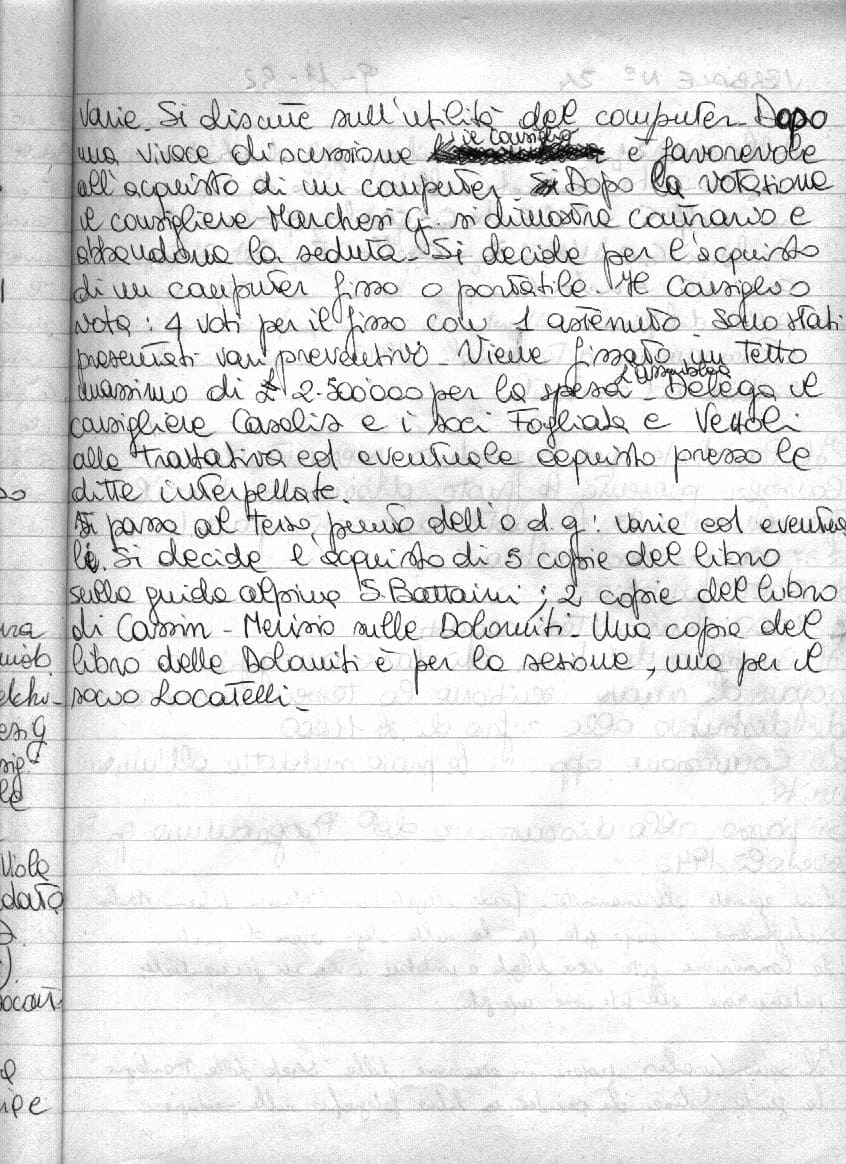 Varie. Si discute sull'utilità del computer. Dopo
una vivace discussione il consiglio è favorevole
all'acquisto di un computer. Dopo la votazione
il consigliere Marchesi G. si dimostra contrario e
abbandona la seduta. Si decide per l'acquisto
di un computer fisso o portatile. Il Consiglio
vota: 4 voti per il fisso con 1 astenuto. Sono stati
presentati vari preventivi. Viene fissato un tetto
massimo di £ 2.500'000 per la spesa. L'assemblea Delega il
consigliere Casalis e i soci Fogliata e Vettoli
alla trattativa ed eventuale acquisto presso le
ditte interpellate.
Si passa al terzo punto dell'o.d.g: varie ed eventua
li. Si decide l'acquisto di 5 copie del libro
sulla guida alpina S. Battaini; 2 copie del libro
di Cassin - Merisio sulle Dolomiti. Una copia del
libro delle Dolomiti è per la sezione, una per il
socio Locatelli.